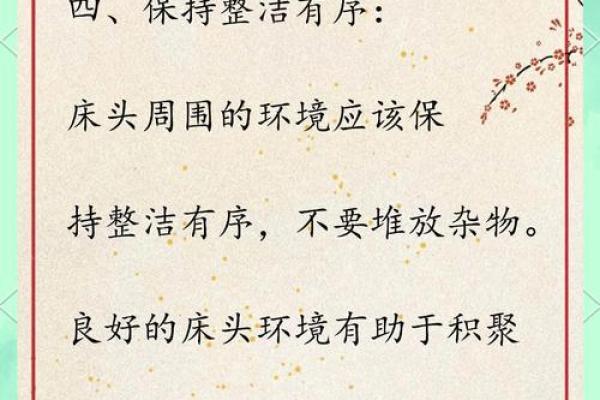 四、保持整洁有序：
床头周围的环境应该保
持整洁有序，不要堆放杂物。
良好的床头环境有助于积聚